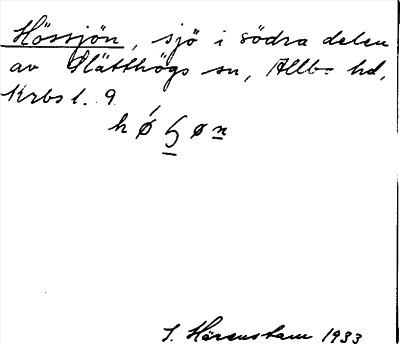 Hössjön, sjö i södra delen
av Slätthögs sn, Allb. hd,
Krbs l. 9
S. Härenstam 1933